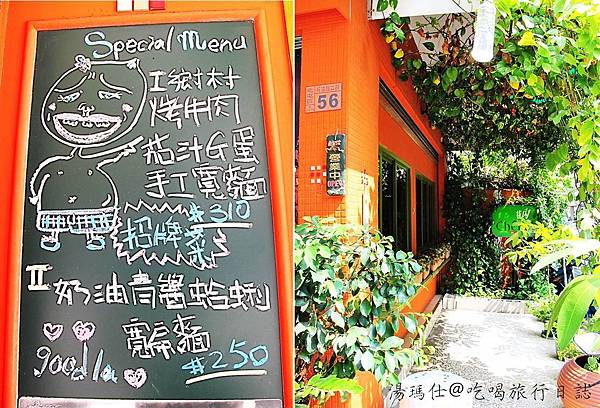 Special Menu
I 鄉村
烤牛肉
茄汁G蛋
手工寬麵
#310
招牌菜
II 奶油青醬蛤蜊
寬扁麵
good la
#250
56
營業中
湯瑪仕@吃喝旅行日誌